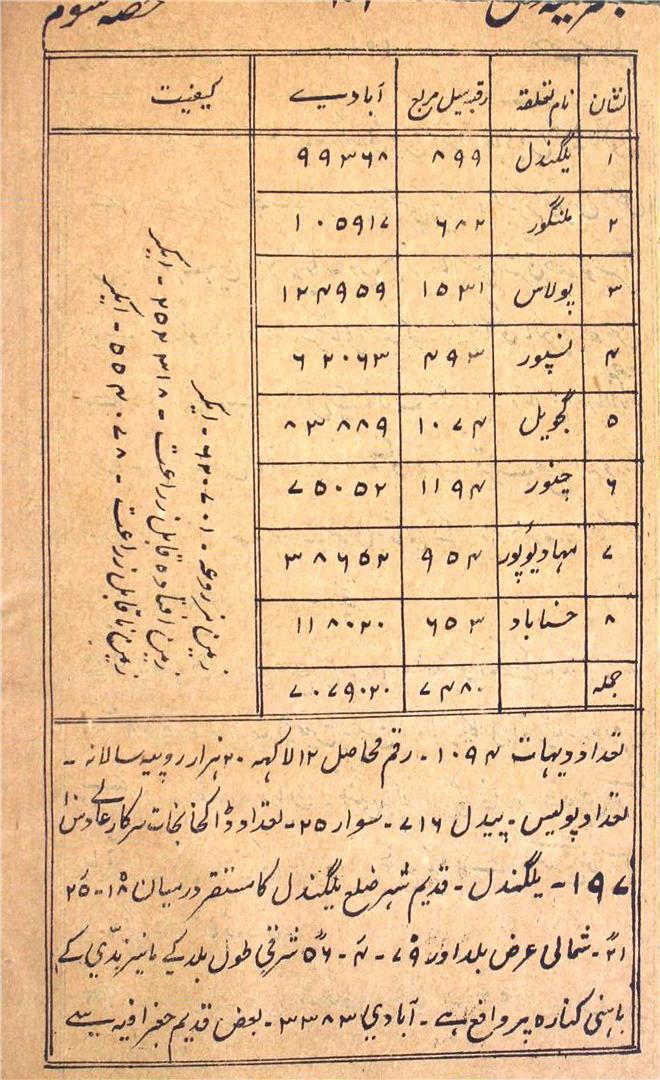 حصہ سوم
نشان نام تعلقہ رقبہ میل مربع آبادی کیفیت
۱ یلگندل ۸۹۹ ۹۹۳۶۸
۲ ملنگور ۶۸۲ ۱۰۵۹۱۷
۳ پولاس ۱۵۳۱ ۱۲۴۹۵۹
۴ نسپور ۴۹۳ ۶۲۰۶۳
۵ گھویل ۱۰۷۴ ۸۳۸۸۹
۶ چنور ۱۱۹۴ ۷۵۰۵۲
۷ مہادیوپور ۹۵۴ ۳۸۶۵۲
۸ حسناباد ۶۵۳ ۱۱۸۰۲۰
جملہ ۷۴۸۰ ۷۰۷۹۲۰
زمین مزروعہ - ۶۲۰۷۰۱ - ایکر
زمین افتادہ قابل زراعت - ۲۵۲۳۱۸ - ایکر
زمین ناقابل زراعت - ۵۵۴۰۷۸ - ایکر
تعداد دیہات ۱۰۹۴ - رقم محاصل ۱۲ لاکہہ ۲۰ ہزار روپیہ سالانہ -
تعداد پولیس - پیدل ۷۱۶ - سوار ۲۵ - تعداد ڈاکخانجات سرکار عالے
۱۹۷ - یلگندل - قدیم شہر ضلع یلگندل کا مستقر درمیان ۱۸ - ۲۵
۲۱ - شمالی عرض بلد اور ۷۹ - ۴ - ۵۶ شرقی طول بلد کے مانیر ندّی کے
باہنی کنارہ پر واقع ہے - آبادی ۳۳۸۳ - بعض قدیم جغرافیہ سے